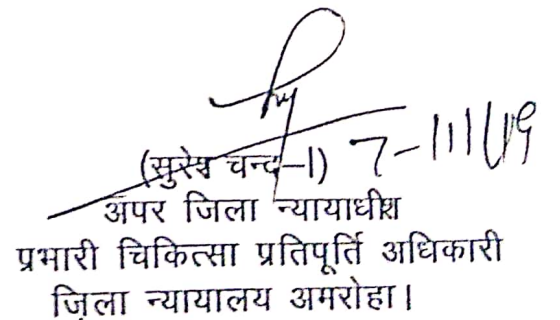 (सुरेश चन्द-I)
अपर जिला न्यायाधीश
प्रभारी चिकित्सा प्रतिपूर्ति अधिकारी
जिला न्यायालय अमरोहा।